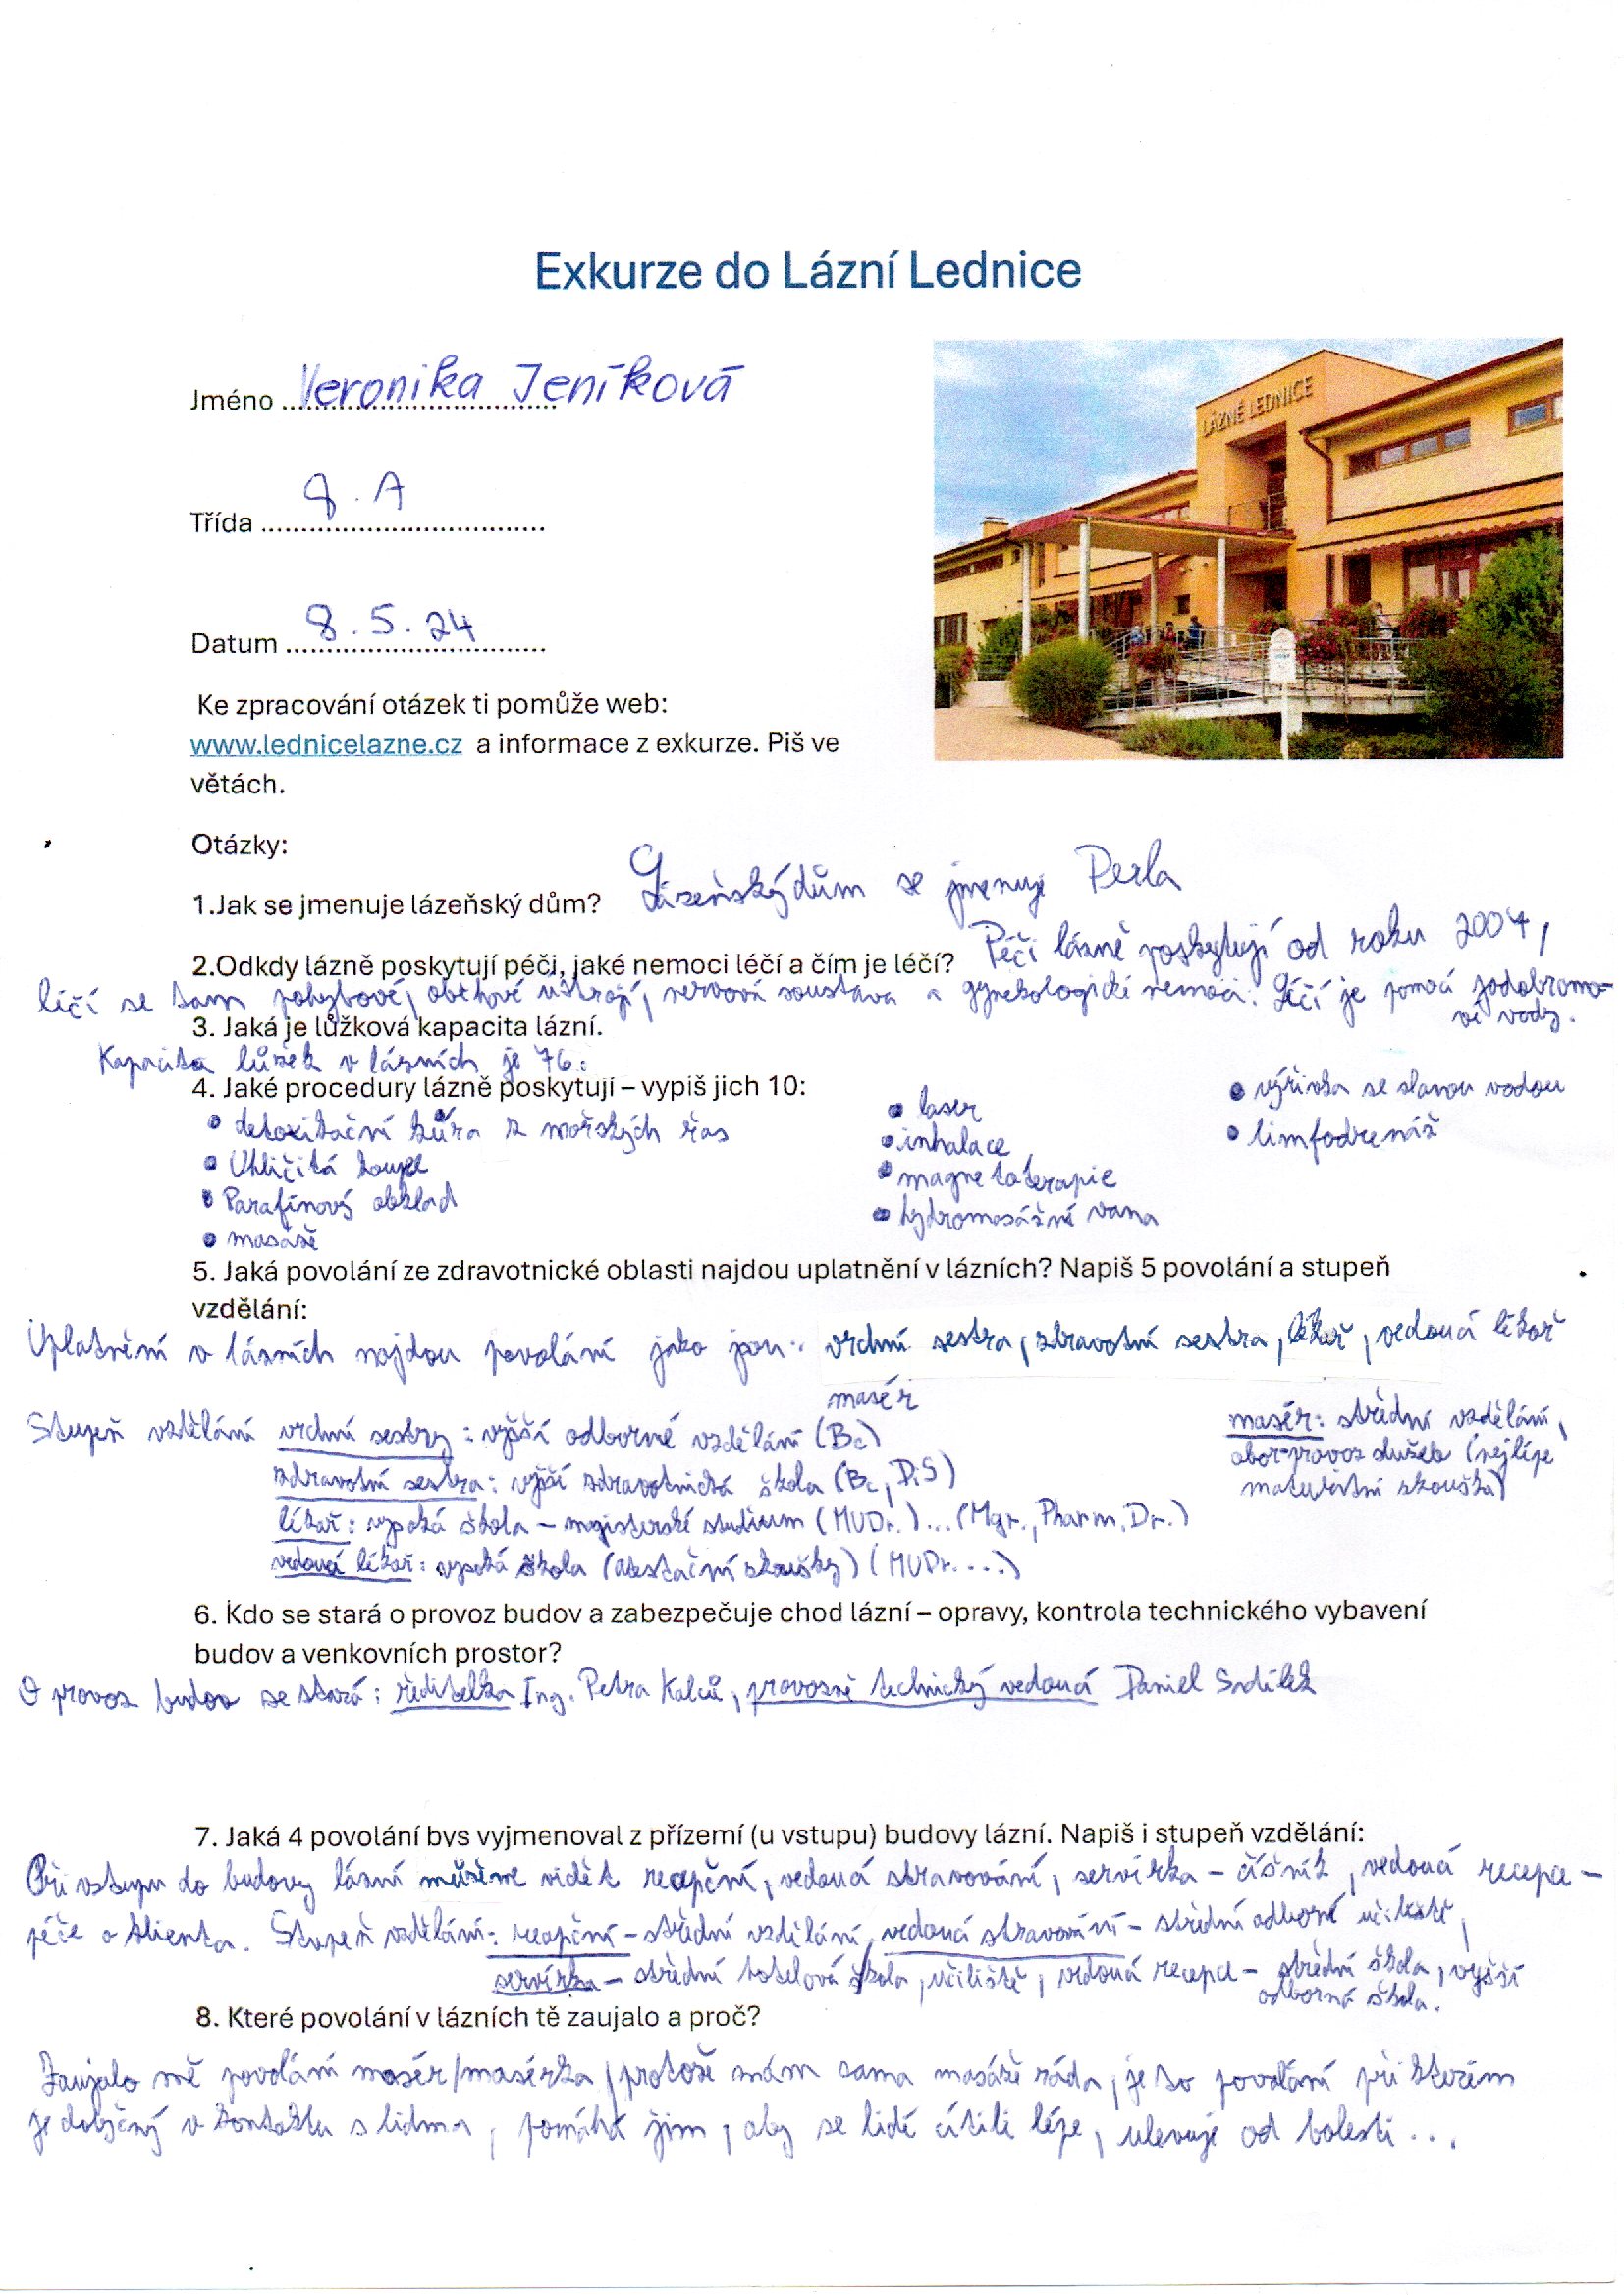 Exkurze do Lázní Lednice
Jméno Veronika Jeníková
LÁZNĚ LEDNICE
Třída 8.A
Datum 8.5.24
Ke zpracování otázek ti pomůže web:
www.lednicelazne.cz a informace z exkurze. Piš ve
větách.
Otázky:
1.Jak se jmenuje lázeňský dům? Lázeňský dům se jmenuje Perla
2.Odkdy lázně poskytují péči, jaké nemoci léčí a čím je léčí? Péči lázně poskytují od roku 2004,
léčí se tam pohybové, oběhové ústrojí, nervová soustava a gynekologické nemoci. Léčí je pomocí jodobromo-
vé vody.
3. Jaká je lůžková kapacita lázní.
Kapacita lůžek v lázních je 76.
4. Jaké procedury lázně poskytují – vypiš jich 10:
• detoxitační kůra z mořských řas
• Uhličitá koupel
• Parafínový obklad
• masáže
• laser
• inhalace
• magnetoterapie
• hydromasážní vana
• výřivka se slanou vodou
• limfodrenáž
5. Jaká povolání ze zdravotnické oblasti najdou uplatnění v lázních? Napiš 5 povolání a stupeň
vzdělání:
Uplatnění v lázních najdou povolání jako jsou: vrchní sestra, zdravotní sestra, lékař, vedoucí lékař
masér
Stupeň vzdělání vrchní sestry: vyšší odborné vzdělání (Bc)
zdravotní sestra: vyšší zdravotnická škola (Bc, DiS)
lékař: vysoká škola – magisterské studium (MUDr.)...(Mgr., Pharm.Dr.)
vedoucí lékař: vysoká škola (atestační zkoušky) (MUDr....)
masér: střední vzdělání,
obor provoz služeb (nejlépe
maturitní zkouška)
6. Kdo se stará o provoz budov a zabezpečuje chod lázní – opravy, kontrola technického vybavení
budov a venkovních prostor?
O provoz budov se stará: ředitelka Ing. Petra Kalců, provozně technický vedoucí Daniel
7. Jaká 4 povolání bys vyjmenoval z přízemí (u vstupu) budovy lázní. Napiš i stupeň vzdělání:
Při vstupu do budovy lázní můžeme vidět recepční, vedoucí stravování, servírka – číšník, vedoucí recepce –
péče o klienta. Stupeň vzdělání: recepční – střední vzdělání, vedoucí stravování – střední odborné učiliště,
servírka – střední hotelová škola, učiliště, vedoucí recepce – střední škola, vyšší
odborná škola.
8. Které povolání v lázních tě zaujalo a proč?
Zaujalo mě povolání masér/masérka, protože mám sama masáže ráda, je to povolání při kterém
je dotyčný v kontaktu s lidma, pomáhá jim, aby se lidé cítili lépe, ulevuje od bolesti...